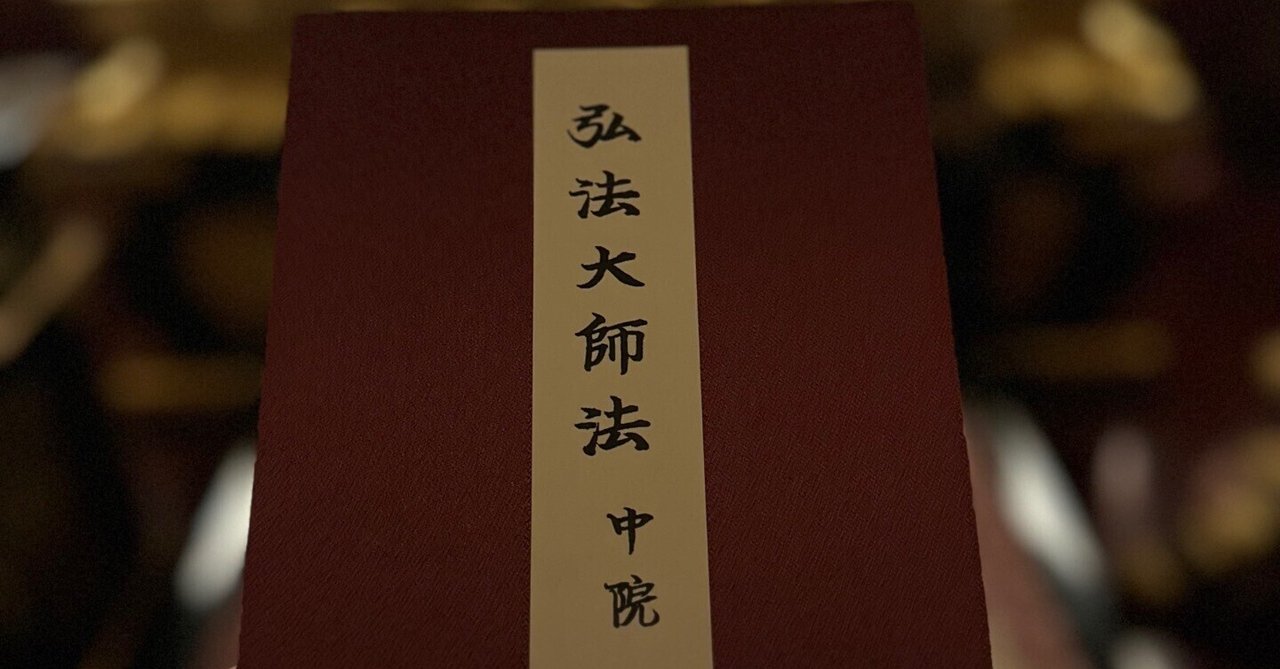 弘法大師法 中院